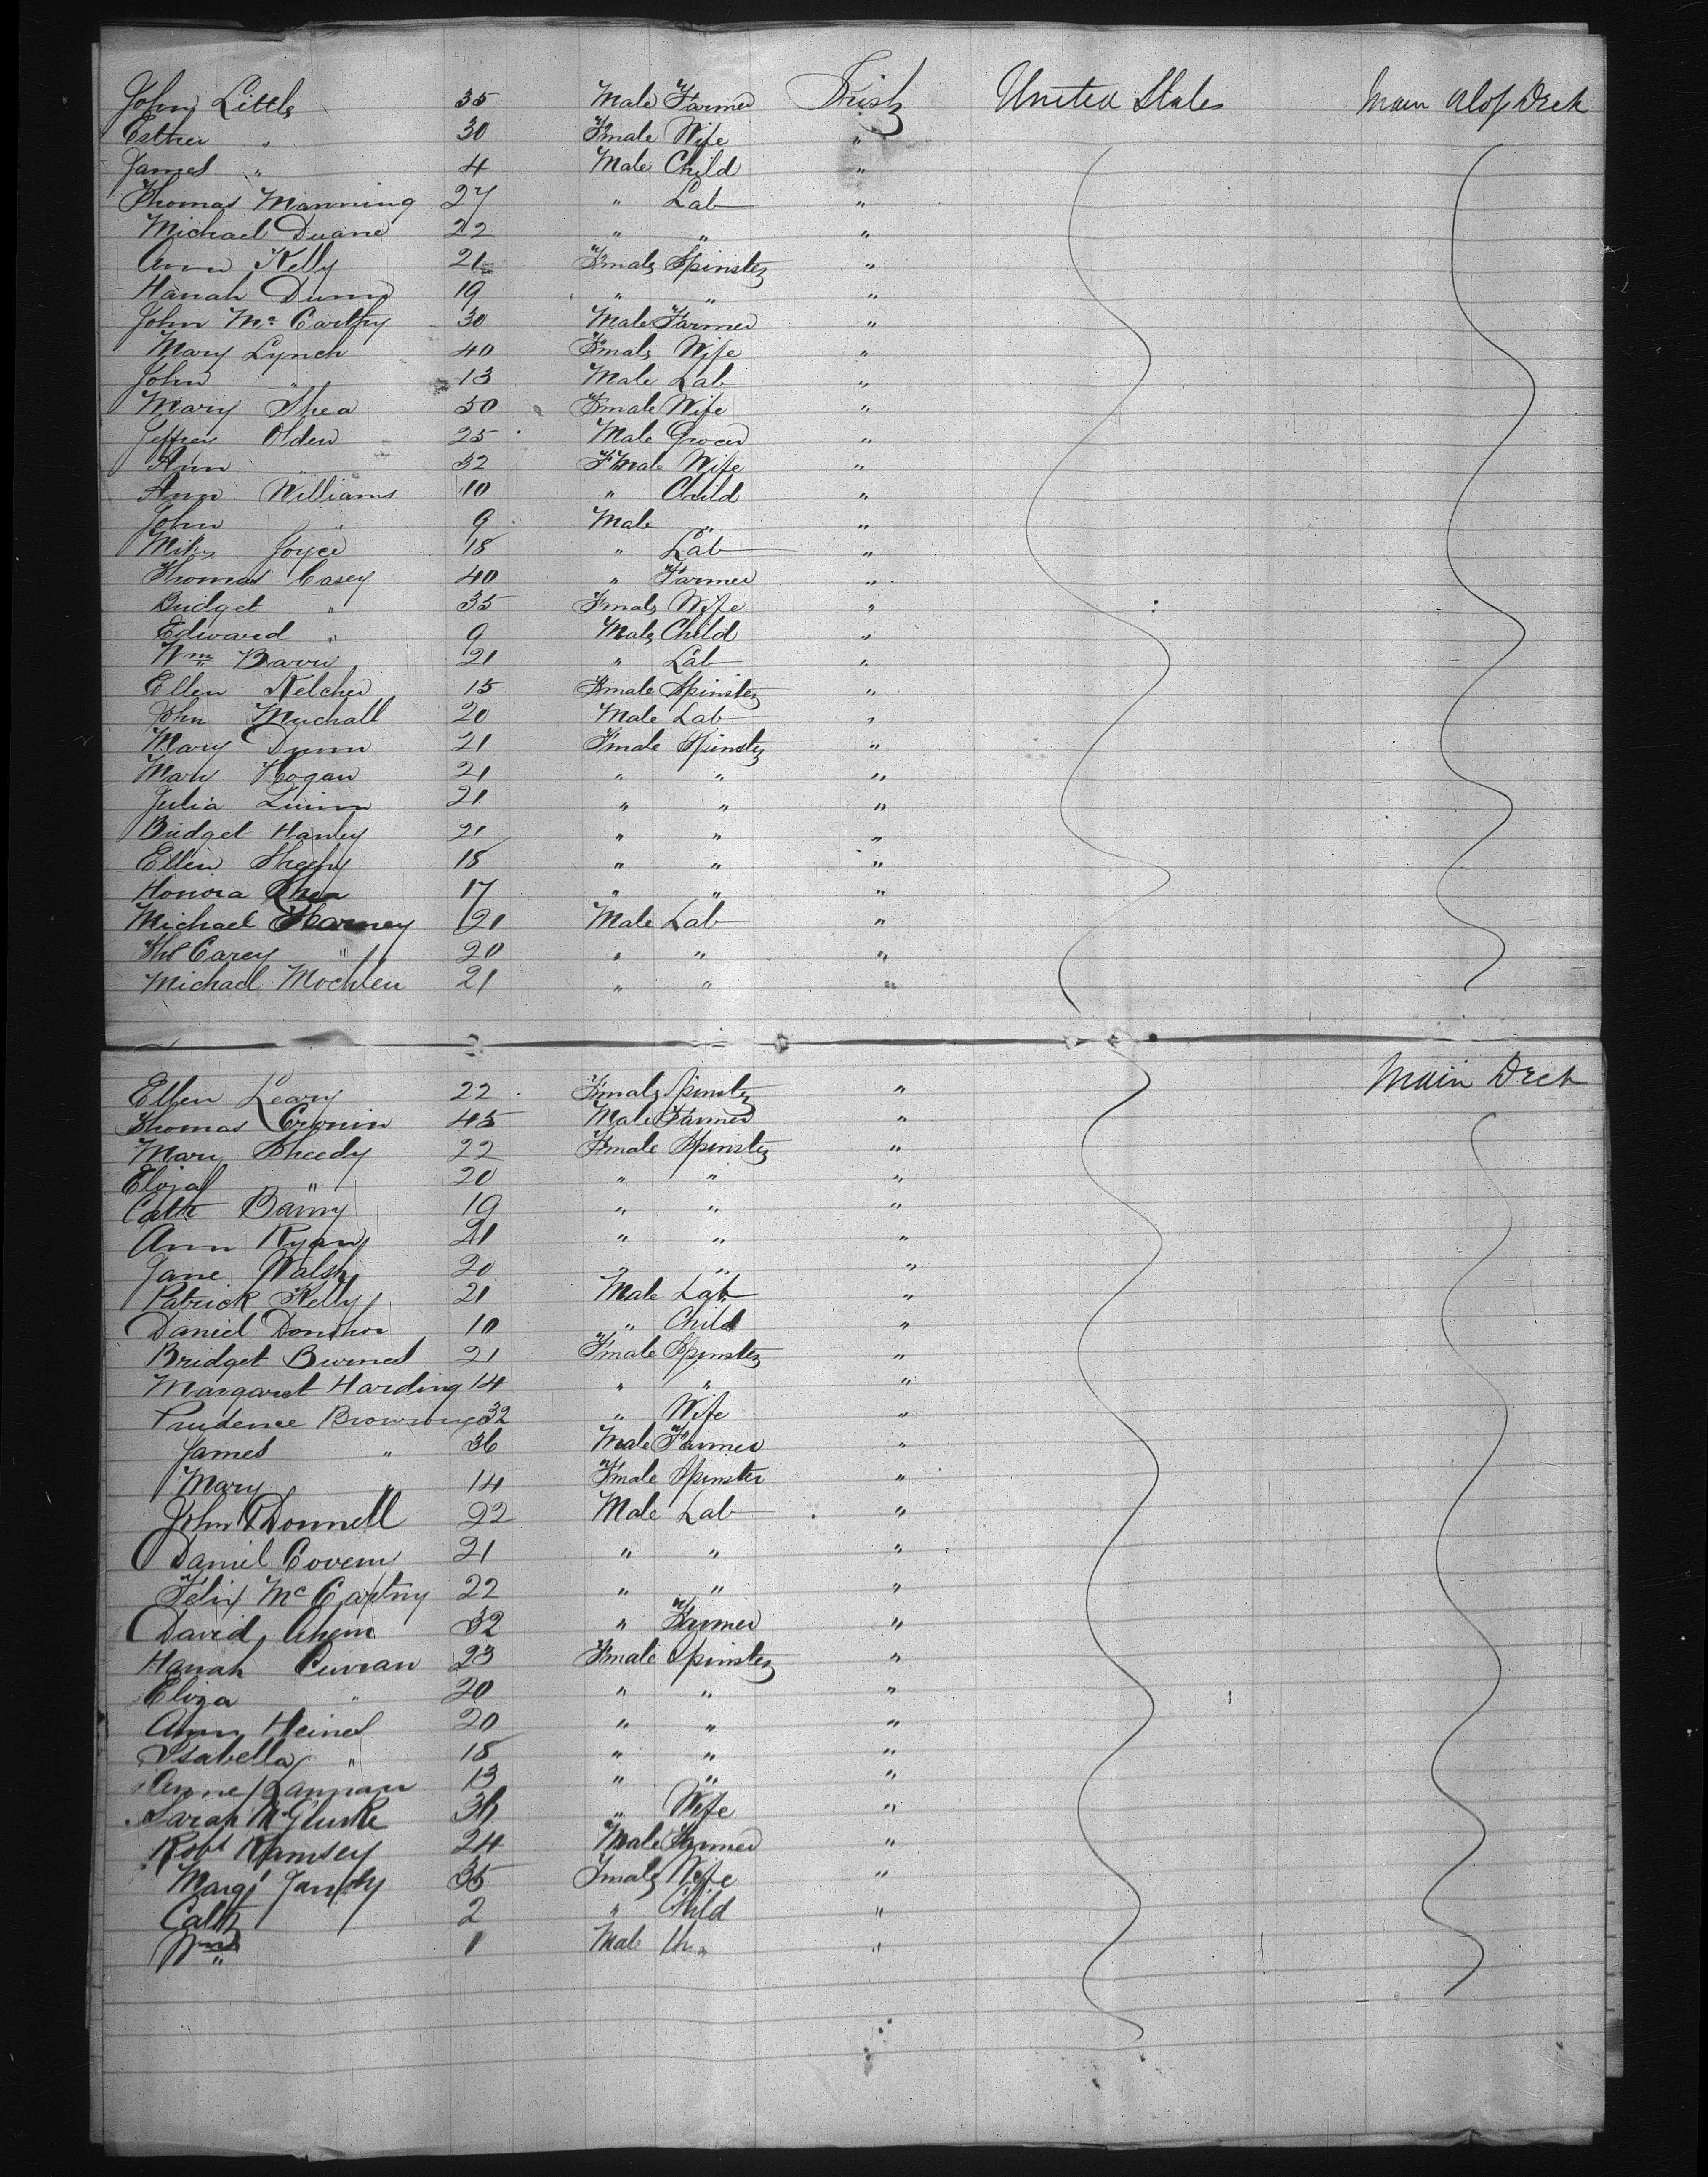 John Little 35 Male Farmer Irish United States Main Alof Deck
Esther " 30 Female Wife "
James " 4 Male Child "
Thomas Manning 27 " Lab "
Michael Duane 22 " " "
Ann Kelly 21 Female Spinster "
Hanah Dunn 19 " " "
John Mc Carthy 30 Male Farmer "
Mary Lynch 40 Female Wife "
John " 13 Male Lab "
Mary Shea 30 Female Wife "
Jeffrey Olden 25 Male Grocer "
Ann " 32 Female Wife "
Ann Williams 10 " Child "
John " 9 Male " "
Mike Joyce 18 " Lab "
Thomas Casey 40 " Farmer "
Bridget " 35 Female Wife "
Edward " 9 Male Child "
Wm 21 " Lab "
Ellen Kelcher 15 Female Spinster "
John 20 Male Lab "
Mary 21 Female Spinster "
Mary Hogan 21 " " "
Julia 21 " " "
Bridget Hanley 21 " " "
Ellen Sheehy 18 " " "
Honora Shea 17 " " "
Michael 21 Male Lab "
Ths Carey " 20 " " "
Michael 21 " " "
Main Deck
Ellen Leary 22 Female Spinster "
Thomas Cronin 45 Male Farmer "
Mary Sheedy 22 Female Spinster "
Elizah " 20 " " "
Cath Barry 19 " " "
Ann Ryan 21 " " "
Jane Walsh 20 " " "
Patrick Kelly 21 Male Lab "
Daniel Donohoe 10 " Child "
Bridget Burnes 21 Female Spinster "
Margaret Harding 14 " " "
Prudence Browning 32 " Wife "
James " 36 Male Farmer "
Mary " 14 Female Spinster "
John ODonnell 22 Male Lab "
Daniel 21 " " "
Felix Mc Cartny 22 " " "
David Ahern 32 " Farmer "
Hanah Curran 23 Female Spinster "
Eliza " 20 " " "
Ann Heines 20 " " "
Isabella " 18 " " "
Anne Lannan 13 " " "
Sarah 36 " Wife "
Robt Ramsey 24 Male Farmer "
Margt 35 Female Wife "
Cath 2 " Child "
Wm " 1 Male Ch " "